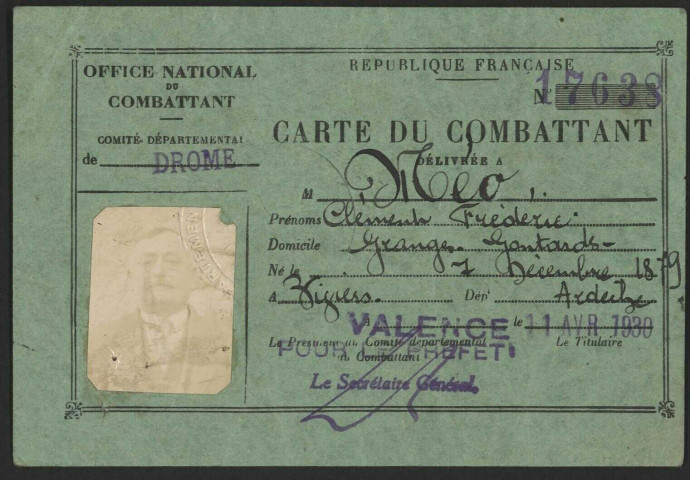 OFFICE NATIONAL
DU
COMBATTANT
COMITÉ DÉPARTEMENTAL
de DROME
RÉPUBLIQUE FRANÇAISE
N° 17638
CARTE DU COMBATTANT
DÉLIVRÉE A
M Méo
Prénoms Clément Frédéric
Domicile Granges Gontardes
Né le 7 Décembre 1879
A Dépt Ardèche
VALENCE le 11 AVR 1930
Le Président du Comité départemental Le Titulaire
POUR LE PRÉFET
du Combattant
Le Secrétaire Général.